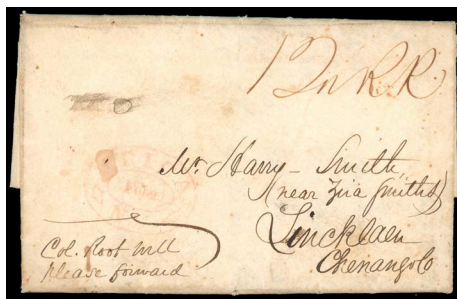 Mr Harry Smith,
(near Zira Smiths)
Lincklaen
Chenango Co
Col. Root will
please forward